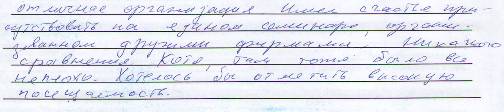 отличная организация Имел счастье при-
сутствовать на едином семинаре, органи-
зованном другими фирмами. Никакого
сравнения. Хотя, там тоже было все
неплохо. Хотелось бы отметить высокую
посещаемость.